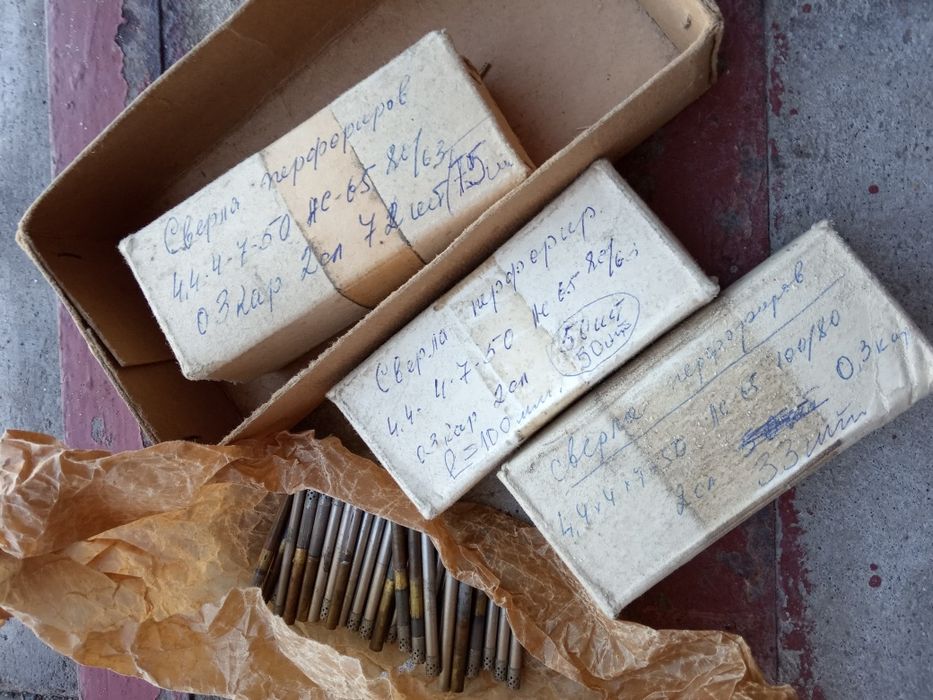 Сверла перфориров
4,4-4-7-50 АС-65 80/63
03 кар 2сл 7.2 шт/75шт
Сверла перфорир.
4.4-4-7-50 АС 65 80/63
03 кар 2сл 50шт
50шт
l=100мм
Сверла перфориров
4,4х4х7х50 АС 65 100/80
2сл 33шт 0,3кар